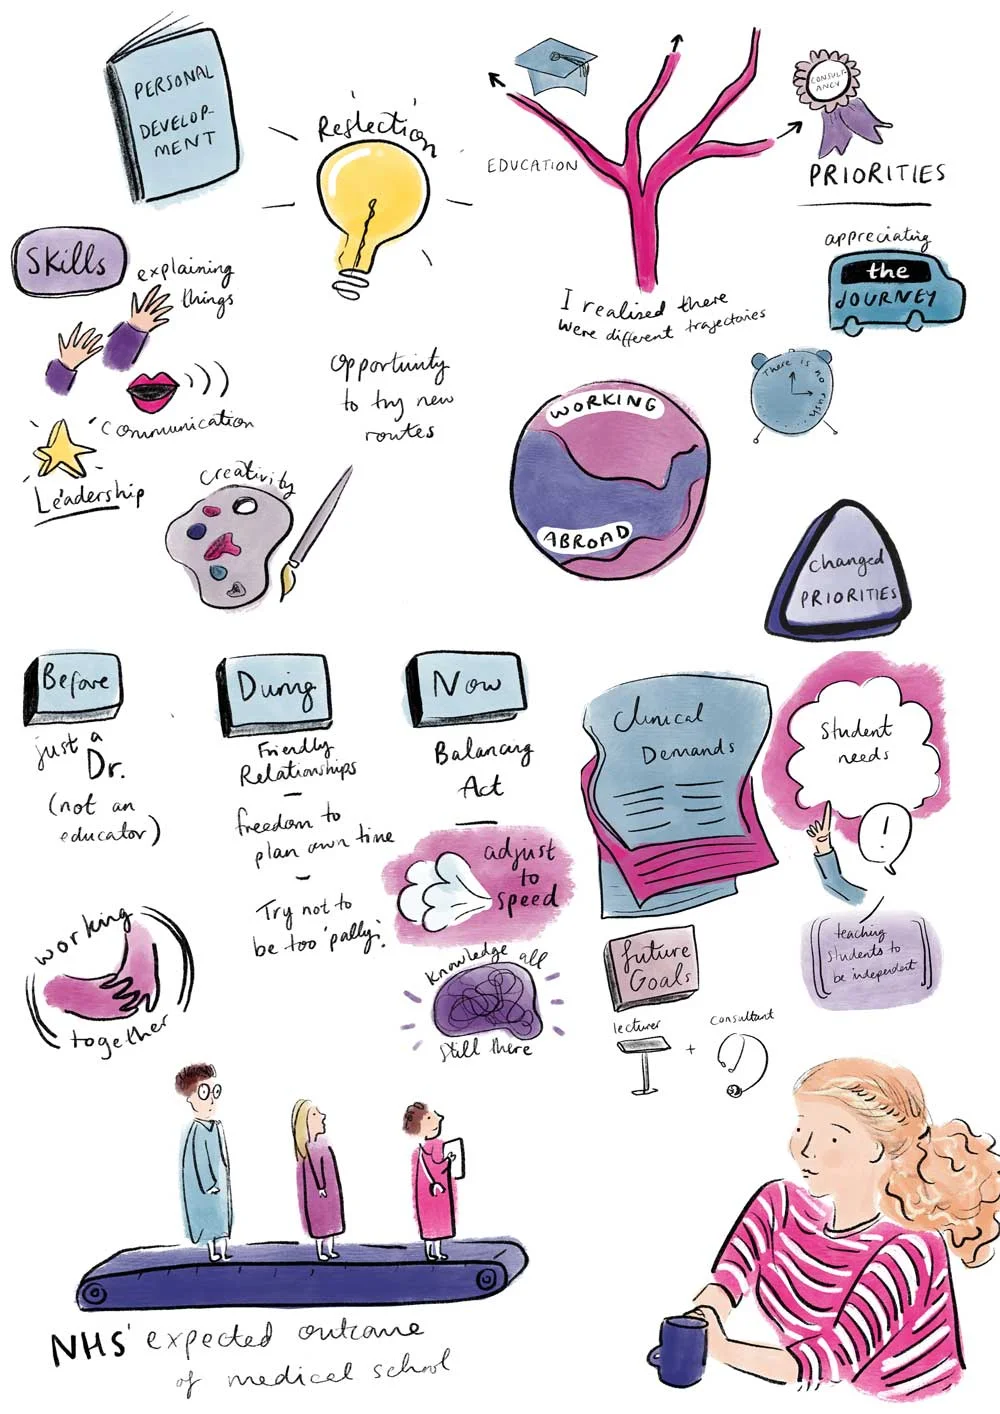 PERSONAL
DEVELOP-
MENT
Reflection
EDUCATION
CONSULT-
ANCY
PRIORITIES
Skills
explaining
things
Communication
Leadership
Creativity
Opportunity
to try new
routes
I realised there
were different trajectories
appreciating
the
JOURNEY
There is no rush...
WORKING
ABROAD
Changed
PRIORITIES
Before
just a
Dr.
(not an
educator)
During
Friendly
Relationships
freedom to
plan own time
Try not to
be too 'pally'.
Now
Balancing
Act
adjust
to
speed
Knowledge all
still there
Clinical
Demands
Student
needs
!
teaching
students to
be independent
future
Goals
lecturer
+
consultant
working
together
NHS' expected outcome
of medical school